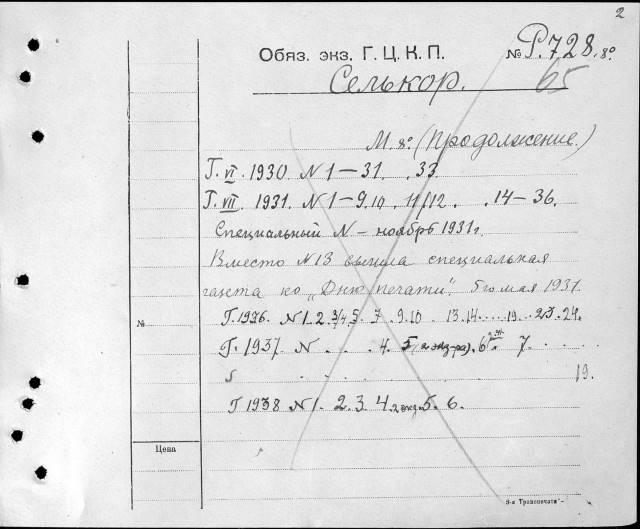 2
Обяз. экз. Г. Ц. К. П. № Р.728. 8°.
Селькор. 65
М. 8°. (Продолжение.)
Г. VI. 1930. N 1–31. .33.
Г. VII. 1931. N 1–9.10. 11/12. .14–36.
Специальный N – ноябрь 1931г.
Вместо N 13 вышла специальная
газета ко „Дню печати". 5го мая 1931.
№ Г. 1936. N 1. 2. 3/4. 5. 7. 9. 10. 13. 14. . . . 19. . . 23. 24.
Г. 1937. N . . . 4. 5 (2 экз-ра). 6 7. . . .
19.
Г 1938 N 1. 2. 3. 4. 2 экз. 5. 6.
Цена